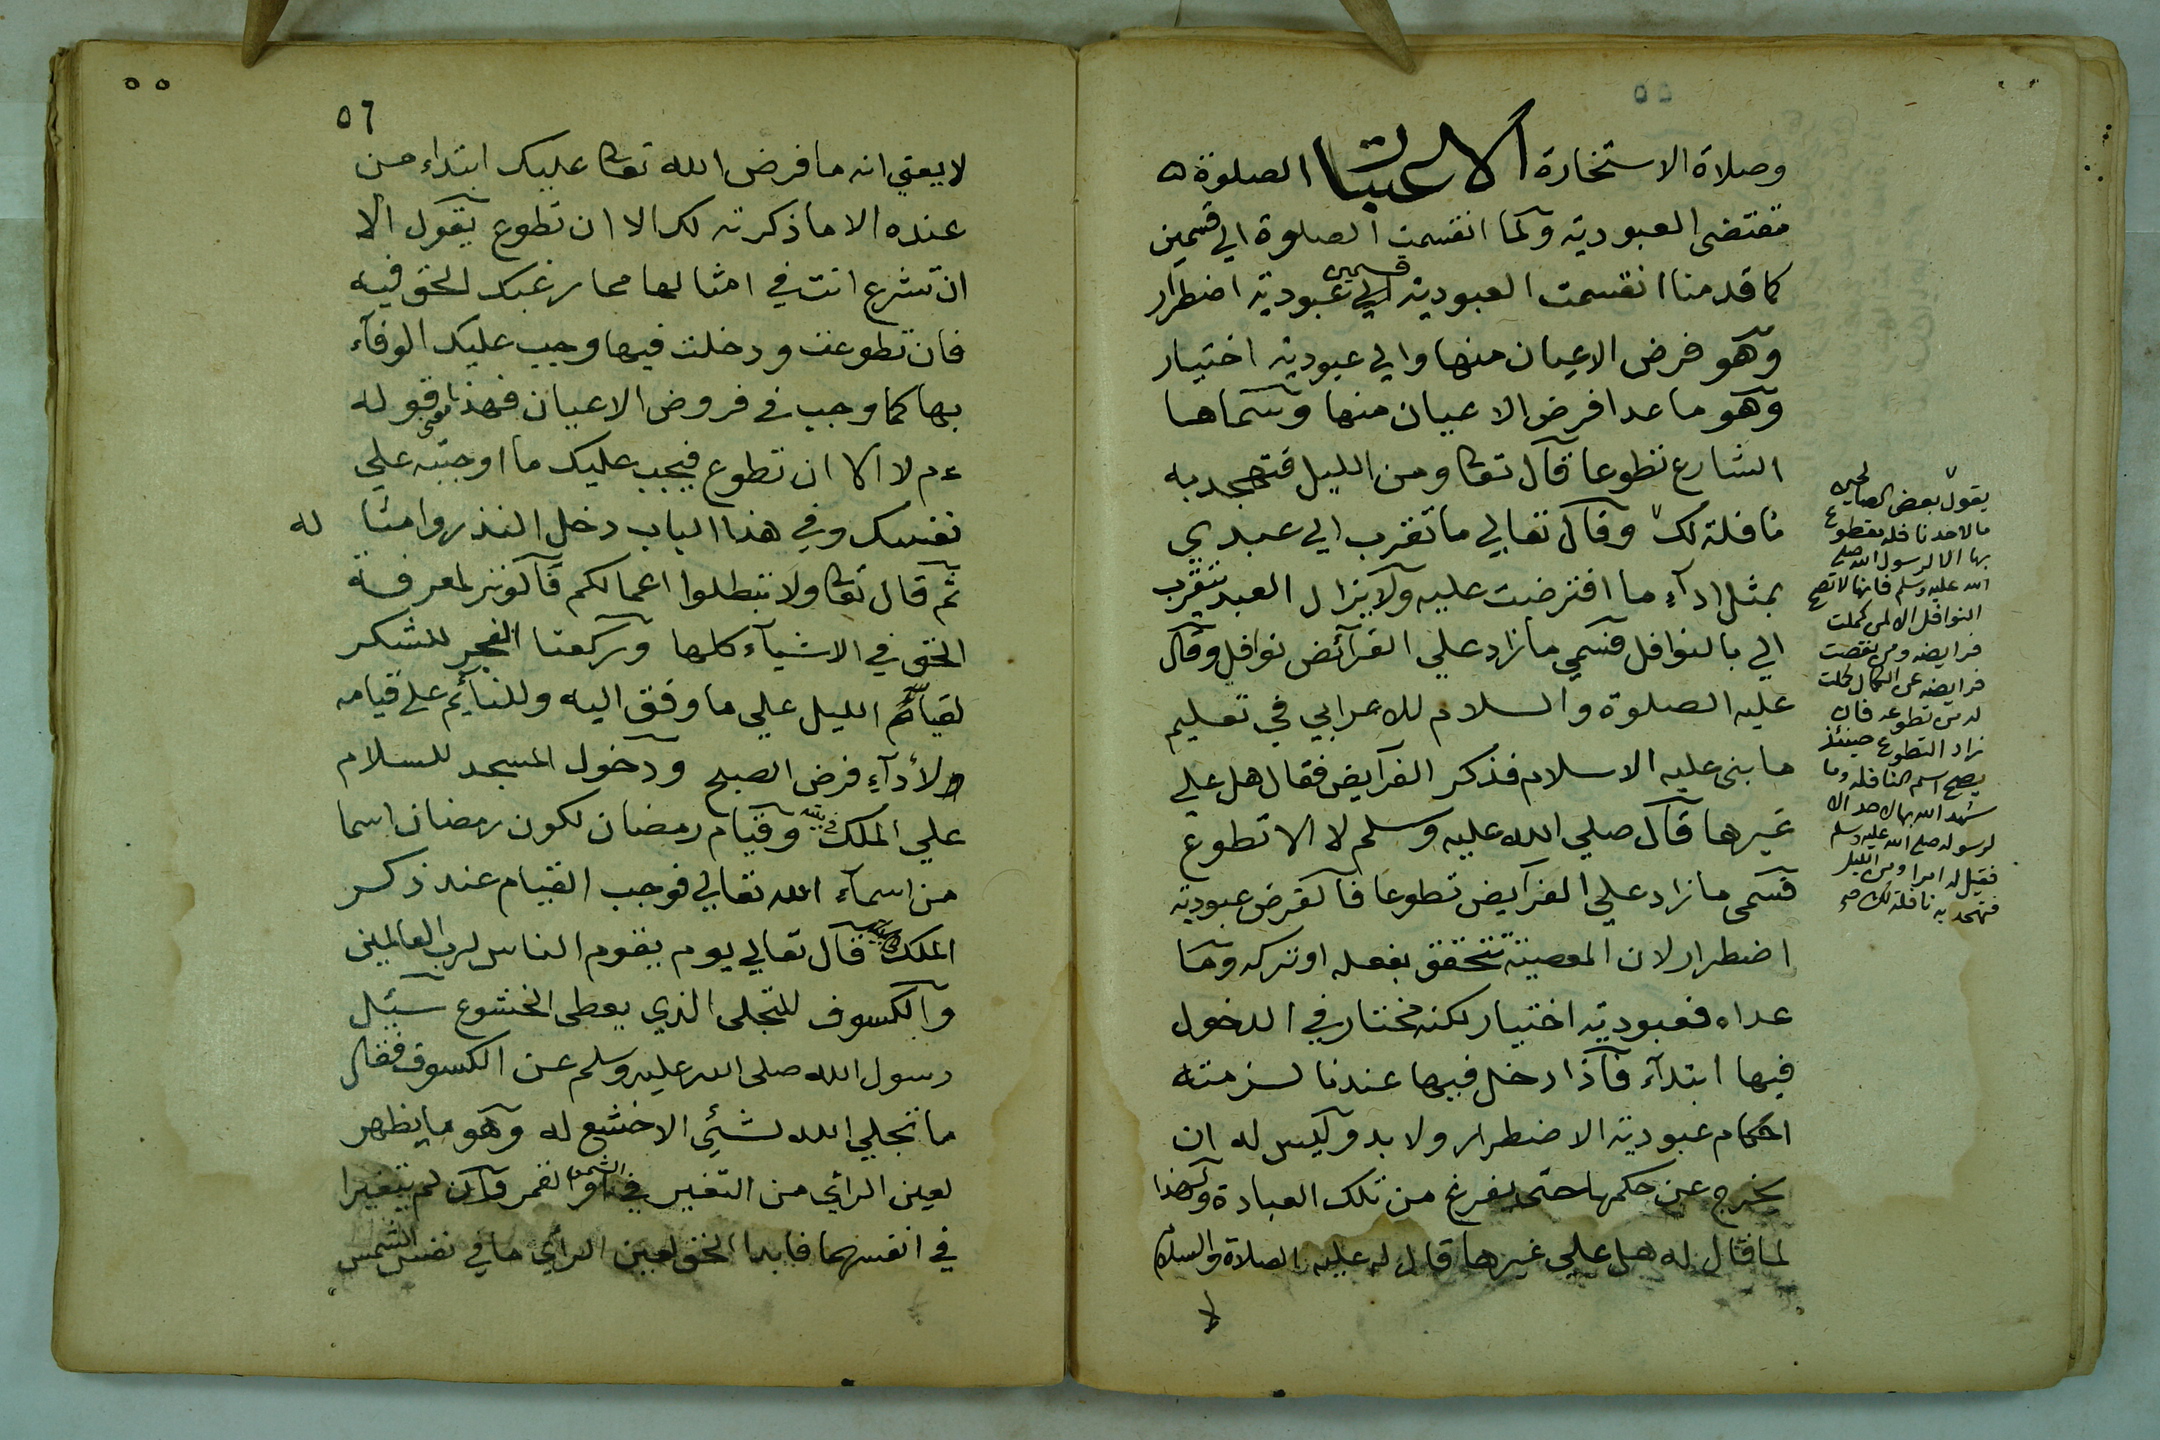 ٥٥
وصلاة الاستخارة الاعتبار الصلوة ه
مقتضى العبودية ولما انقسمت الصلوة الي قسمين
كما قدمنا انقسمت العبودية الي قسمين عبودية اضطرار
وهو فرض الاعيان منها والي عبودية اختيار
وهو ما عدا فرض الاعيان منها وسماها
الشارع تطوعا قال تعا ومن الليل فتهجد به
نافلة لك وقال تعالي ما تقرب الي عبدي
بمثل ادآء ما افترضت عليه ولا يزال العبد يتقرب
الي بالنوافل فسمي ما زاد علي الفرآئض نوافل وقال
عليه الصلوة والسلام للاعرابي في تعليم
ما بنى عليه الاسلام فذكر الفرآيض فقال هل علي
غيرها قال صلي الله عليه وسلم لا الا تطوع
فسمى ما زاد علي الفرآيض تطوعا فالفرض عبودية
اضطرار لان المعصية تتحقق بفعله او تركه وما
عداه فعبودية اختيار لكنه مختار في الدخول
فيها ابتدآء فاذا دخل فيها عندنا لزمته
احكام عبودية الاضطرار ولا بد وليس له ان
يخرج عن حكمها حتى يفرغ من تلك العبادة ولهذا
لما قال له هل علي غيرها قال له عليه الصلاة والسلام
لا
يقول بعض الصالحين
ما لاحد نافلة يتطوع
بها الا لرسول الله صلى
الله عليه وسلم فانها لا تصح
النوافل الا لمن كملت
فرايضه ومن نقصت
فرايضه عن الكمال كملت
له من تطوعه فان
زاد التطوع حينئذ
يصح اسم النافلة وما
شهد الله بها لاحد الا
لرسوله صلى الله عليه وسلم
فقيل له امرا ومن الليل
فتهجد به نافلة لك صح
٥٥
٥٦
لا يعني انه ما فرض الله تعا عليك ابتداء من
عنده الا ما ذكرته لك الا ان تطوع يقول الا
ان تشرع انت في امثالها مما رغبك الحق فيه
فان تطوعت ودخلت فيها وجب عليك الوفآء
بها كما وجب في فروض الاعيان فهذا معنى قوله
ءم لا الا ان تطوع فيجب عليك ما اوجبته علي
نفسك وفي هذا الباب دخل النذر وامثا له
ثم قال تعا ولا تبطلوا اعمالكم فالوتر لمعرفة
الحق في الاشيآء كلها وركعتا الفجر للشكر
لقيام الليل علي ما وفق اليه وللنآئم على قيامه
لأدآء فرض الصبح ودخول المسجد للسلام
علي الملك في بيته وقيام رمضان لكون رمضان اسما
من اسمآء الله تعالي فوجب القيام عند ذكر
الملك قال تعالي يوم يقوم الناس لرب العالمين
والكسوف للتجلى الذي يعطى الخشوع سئيل
رسول الله صلى الله عليه وسلم عن الكسوف فقال
ما تجلي الله لشئي الا خشع له وهو ما يظهر
لعين الرائي من التغير في الشمس والقمر وان لم يتغيرا
في انفسهما فابدا الحق لعين الرآي ما في نفس الشمس